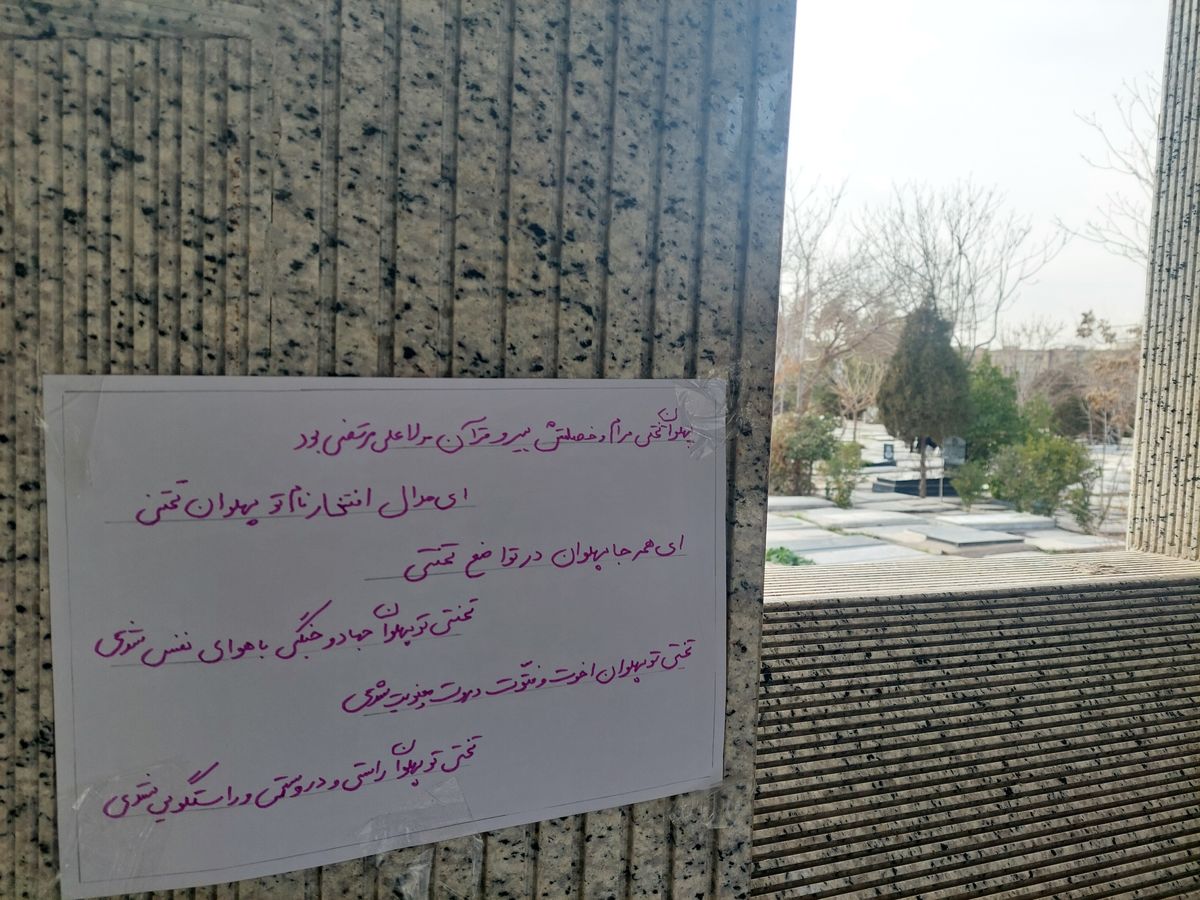 پهلوان تختی مرام و خصلتش پیرو قرآن مولا علی مرتضی بود
ای مدال افتخار نام تو پهلوان تختی
ای همه جا پهلوان در تواضع تختی
تختی تو پهلوان جهاد و جنگی با هوای نفس شدی
تختی تو پهلوان اخوت و فتوت معنویت شدی
تختی تو پهلوان راستی و درستی و راستگویی شدی